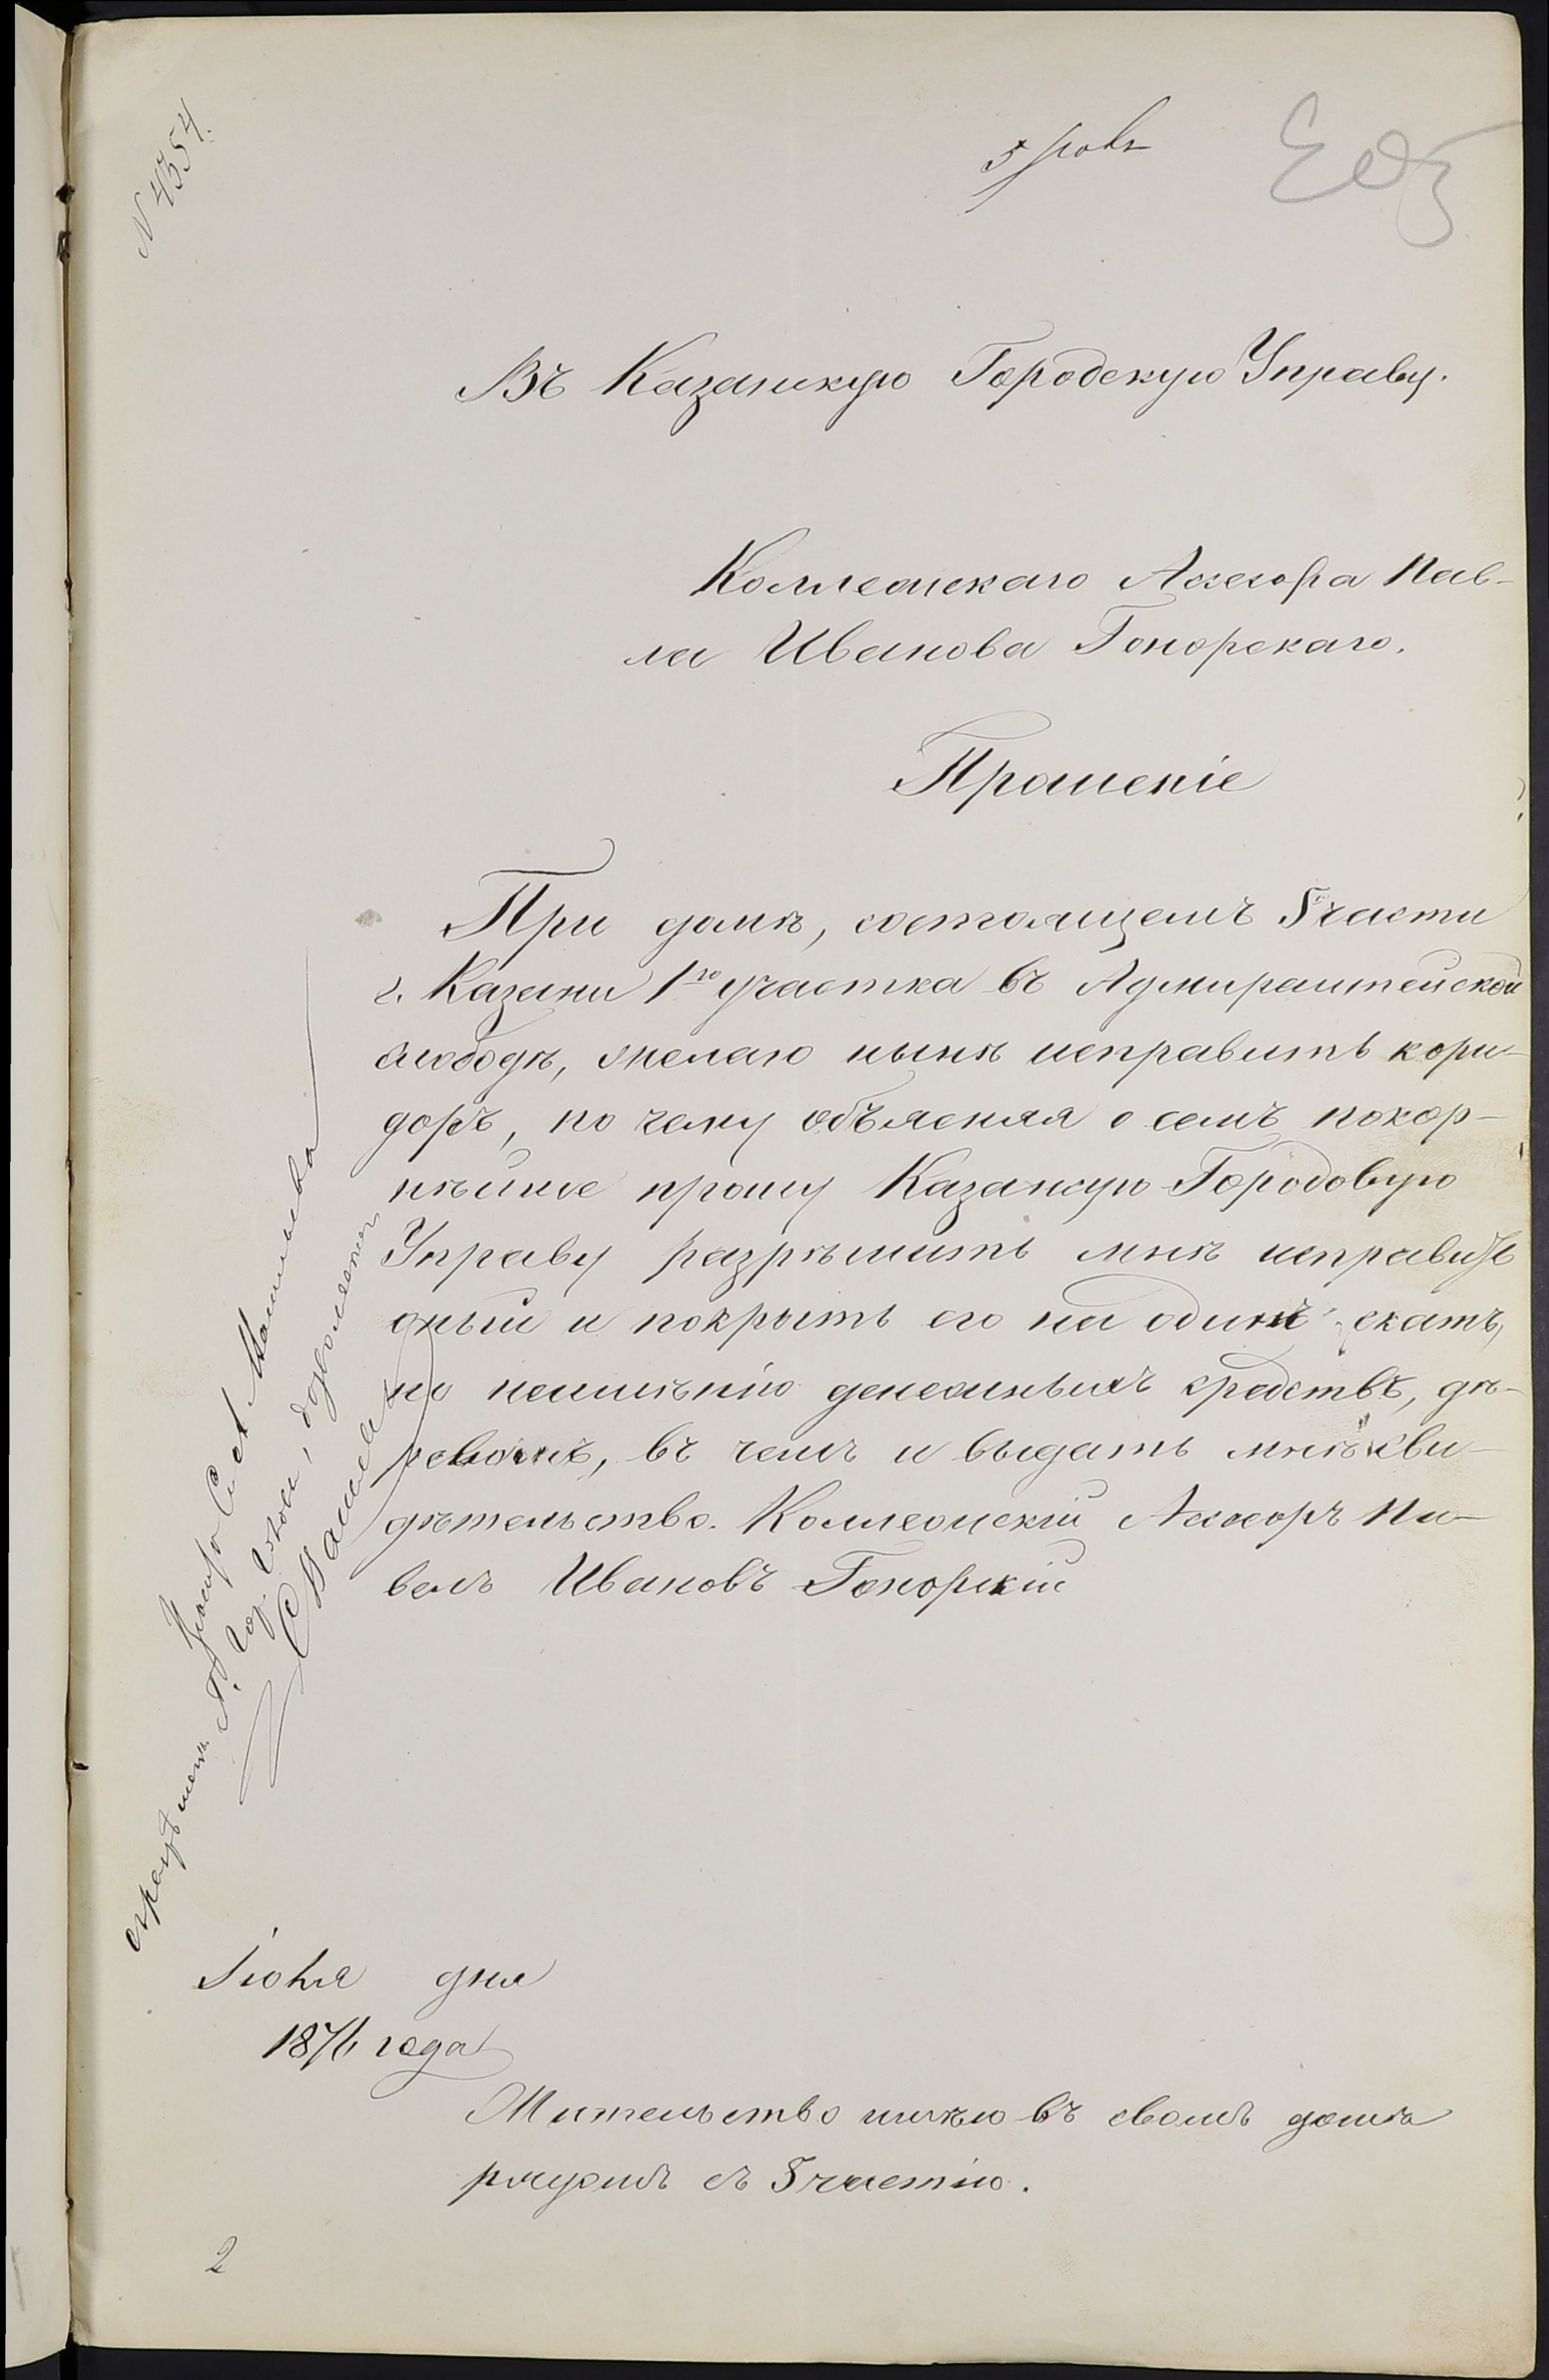 N 4354.
Въ Казанскую Городскую Управу.
Коллежскаго Ассесора Пав-
ла Иванова Гонорскаго.
Прошеніе
При домѣ, состоящемъ 5 части
г. Казани 1го участка въ Адмиралтейской
слободѣ, желаю нынѣ исправить кори-
доръ, по чему объясняя о семъ покор-
нѣйше прошу Казанскую Городовую
Управу разрѣшить мнѣ исправить
оный и покрыть его на одинъ скатъ,
по неимѣнію денежныхъ средствъ, де-
ревомъ, въ чемъ и выдать мнѣ сви-
дѣтельство. Коллежскій Ассесоръ Па-
велъ Ивановъ Гонорскій
Іюня дня
1871 года
Жительство имѣю въ своемъ домѣ
рядомъ съ 5 частію.
2